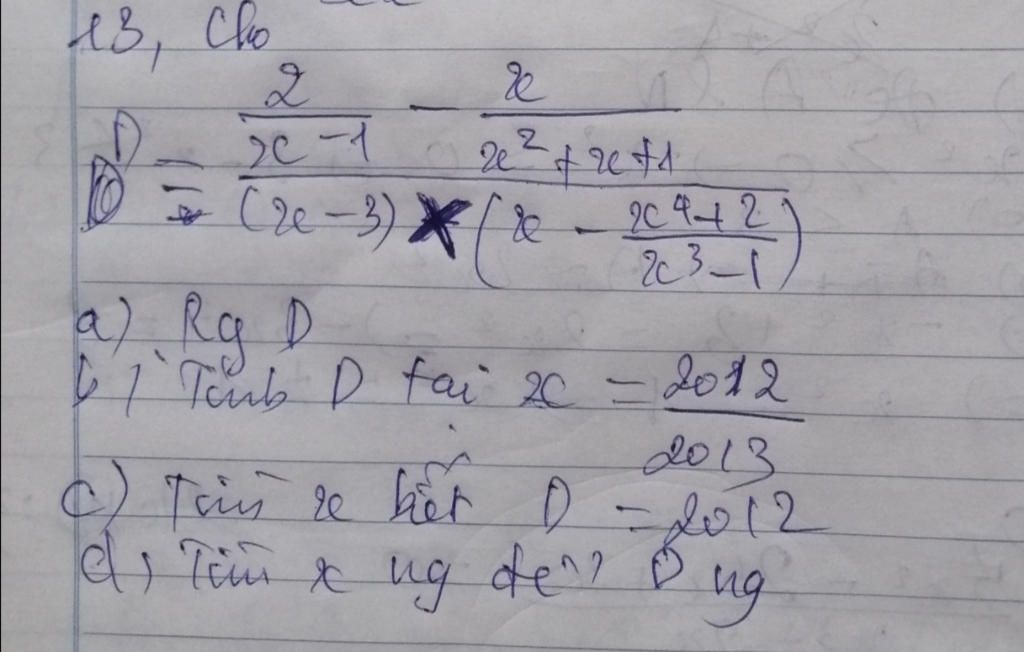 13, Cho
D = (2/(x-1) - x/(x²+x+1)) / ((x-3) × (x - (x⁴+2)/(x³-1)))
a) Rg D
b) Tính D tại x = 2012/2013
c) Tìm x biết D = 2012
d) Tìm x ng để D ng